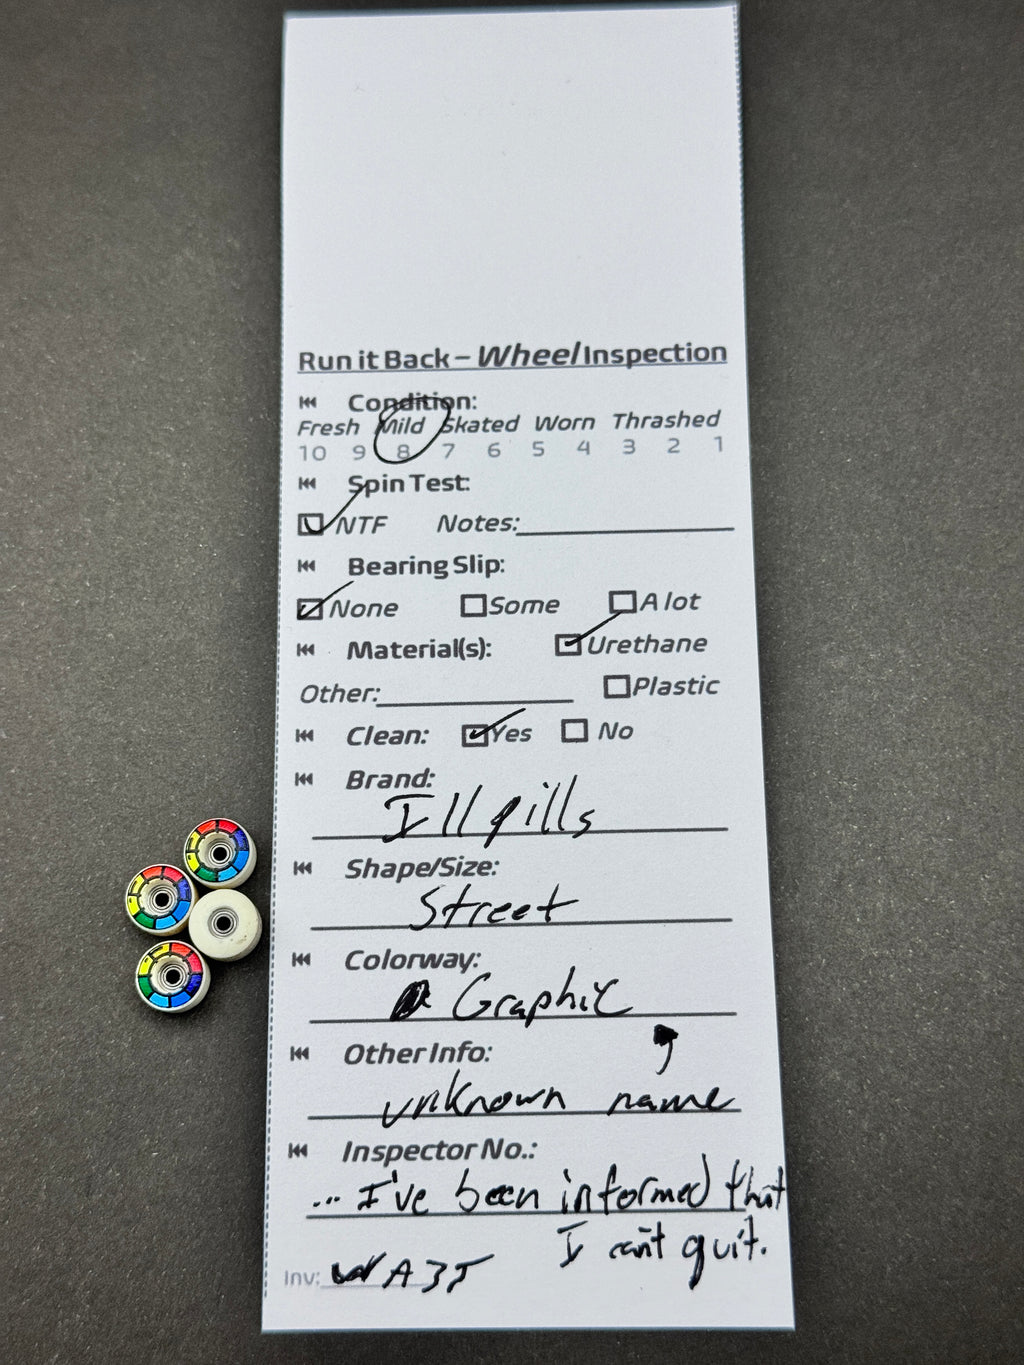 Run it Back – Wheel Inspection
Condition:
Fresh Mild Skated Worn Thrashed
10 9 8 7 6 5 4 3 2 1
Spin Test:
NTF Notes:
Bearing Slip:
None Some A lot
Material(s): Urethane
Other: Plastic
Clean: Yes No
Brand:
Ill pills
Shape/Size:
Street
Colorway:
Graphic
Other Info:
unknown name
Inspector No.:
... I've been informed that
I can't quit.
Inv: